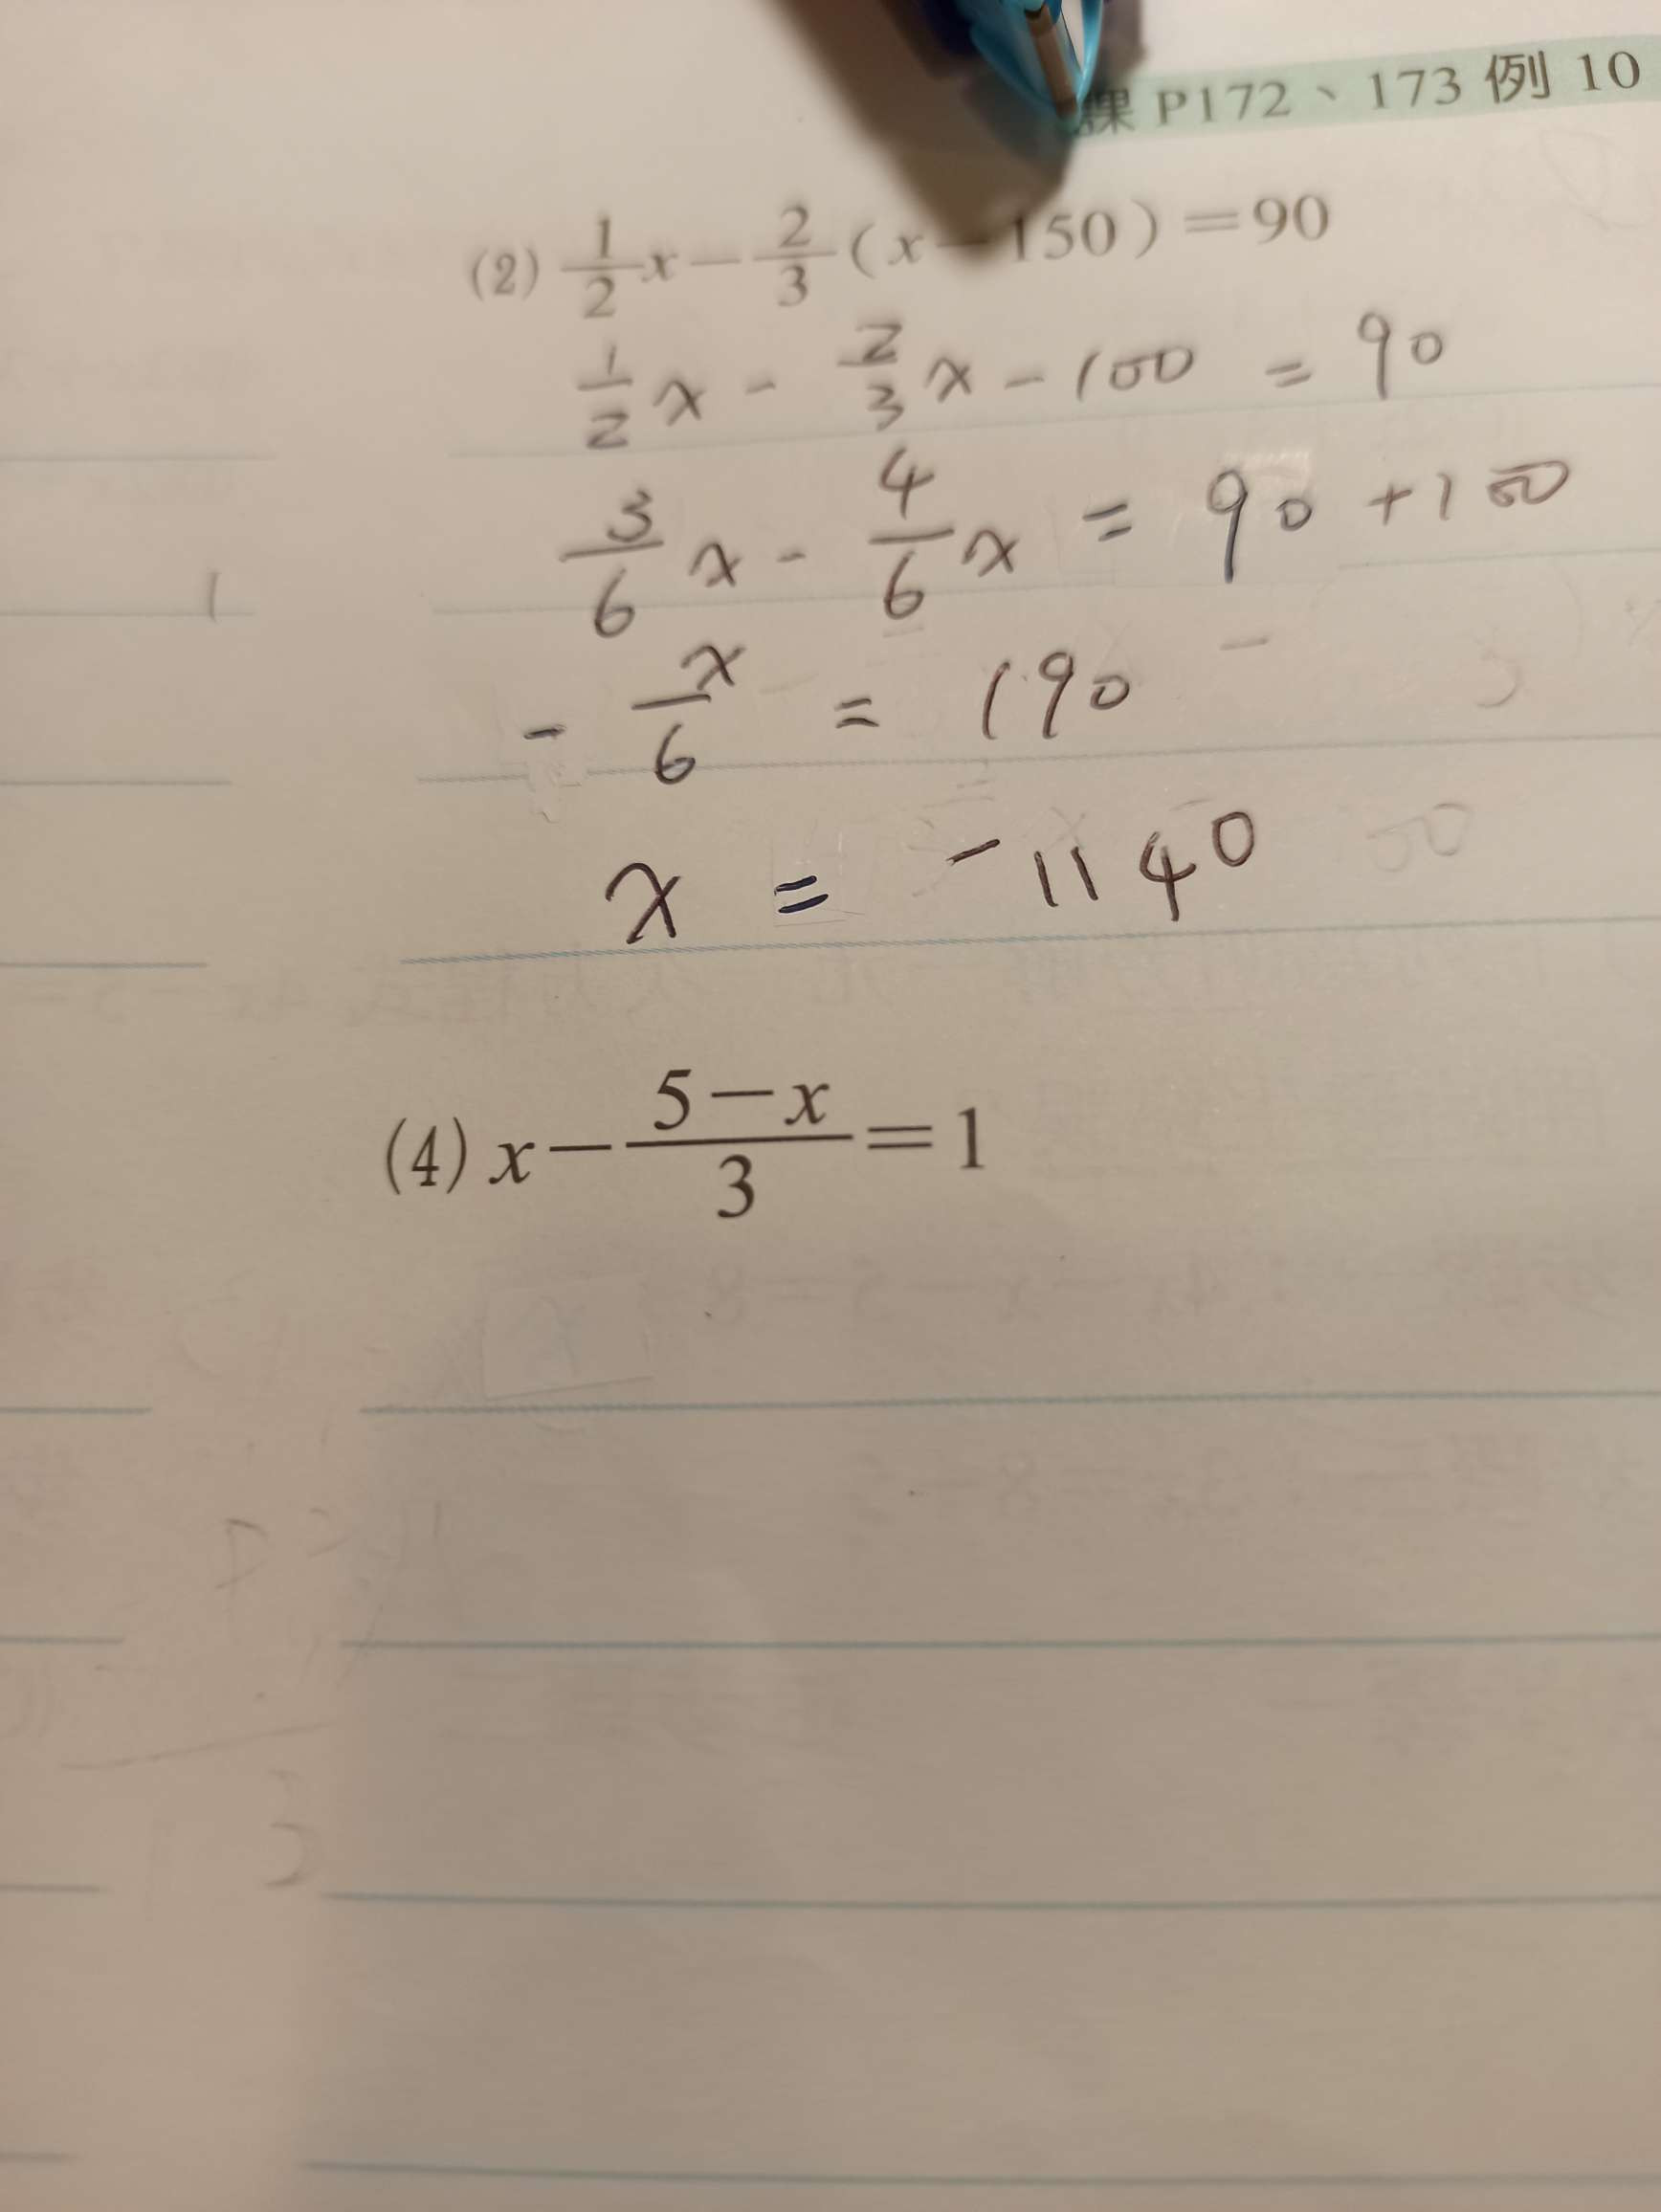 課 P172、173 例 10
(2) 1/2 x − 2/3 (x − 150) = 90
1/2 x - 2/3 x - 100 = 90
3/6 x - 4/6 x = 90 + 100
- x/6 = 190
x = -1140
(4) x − (5−x)/3 = 1